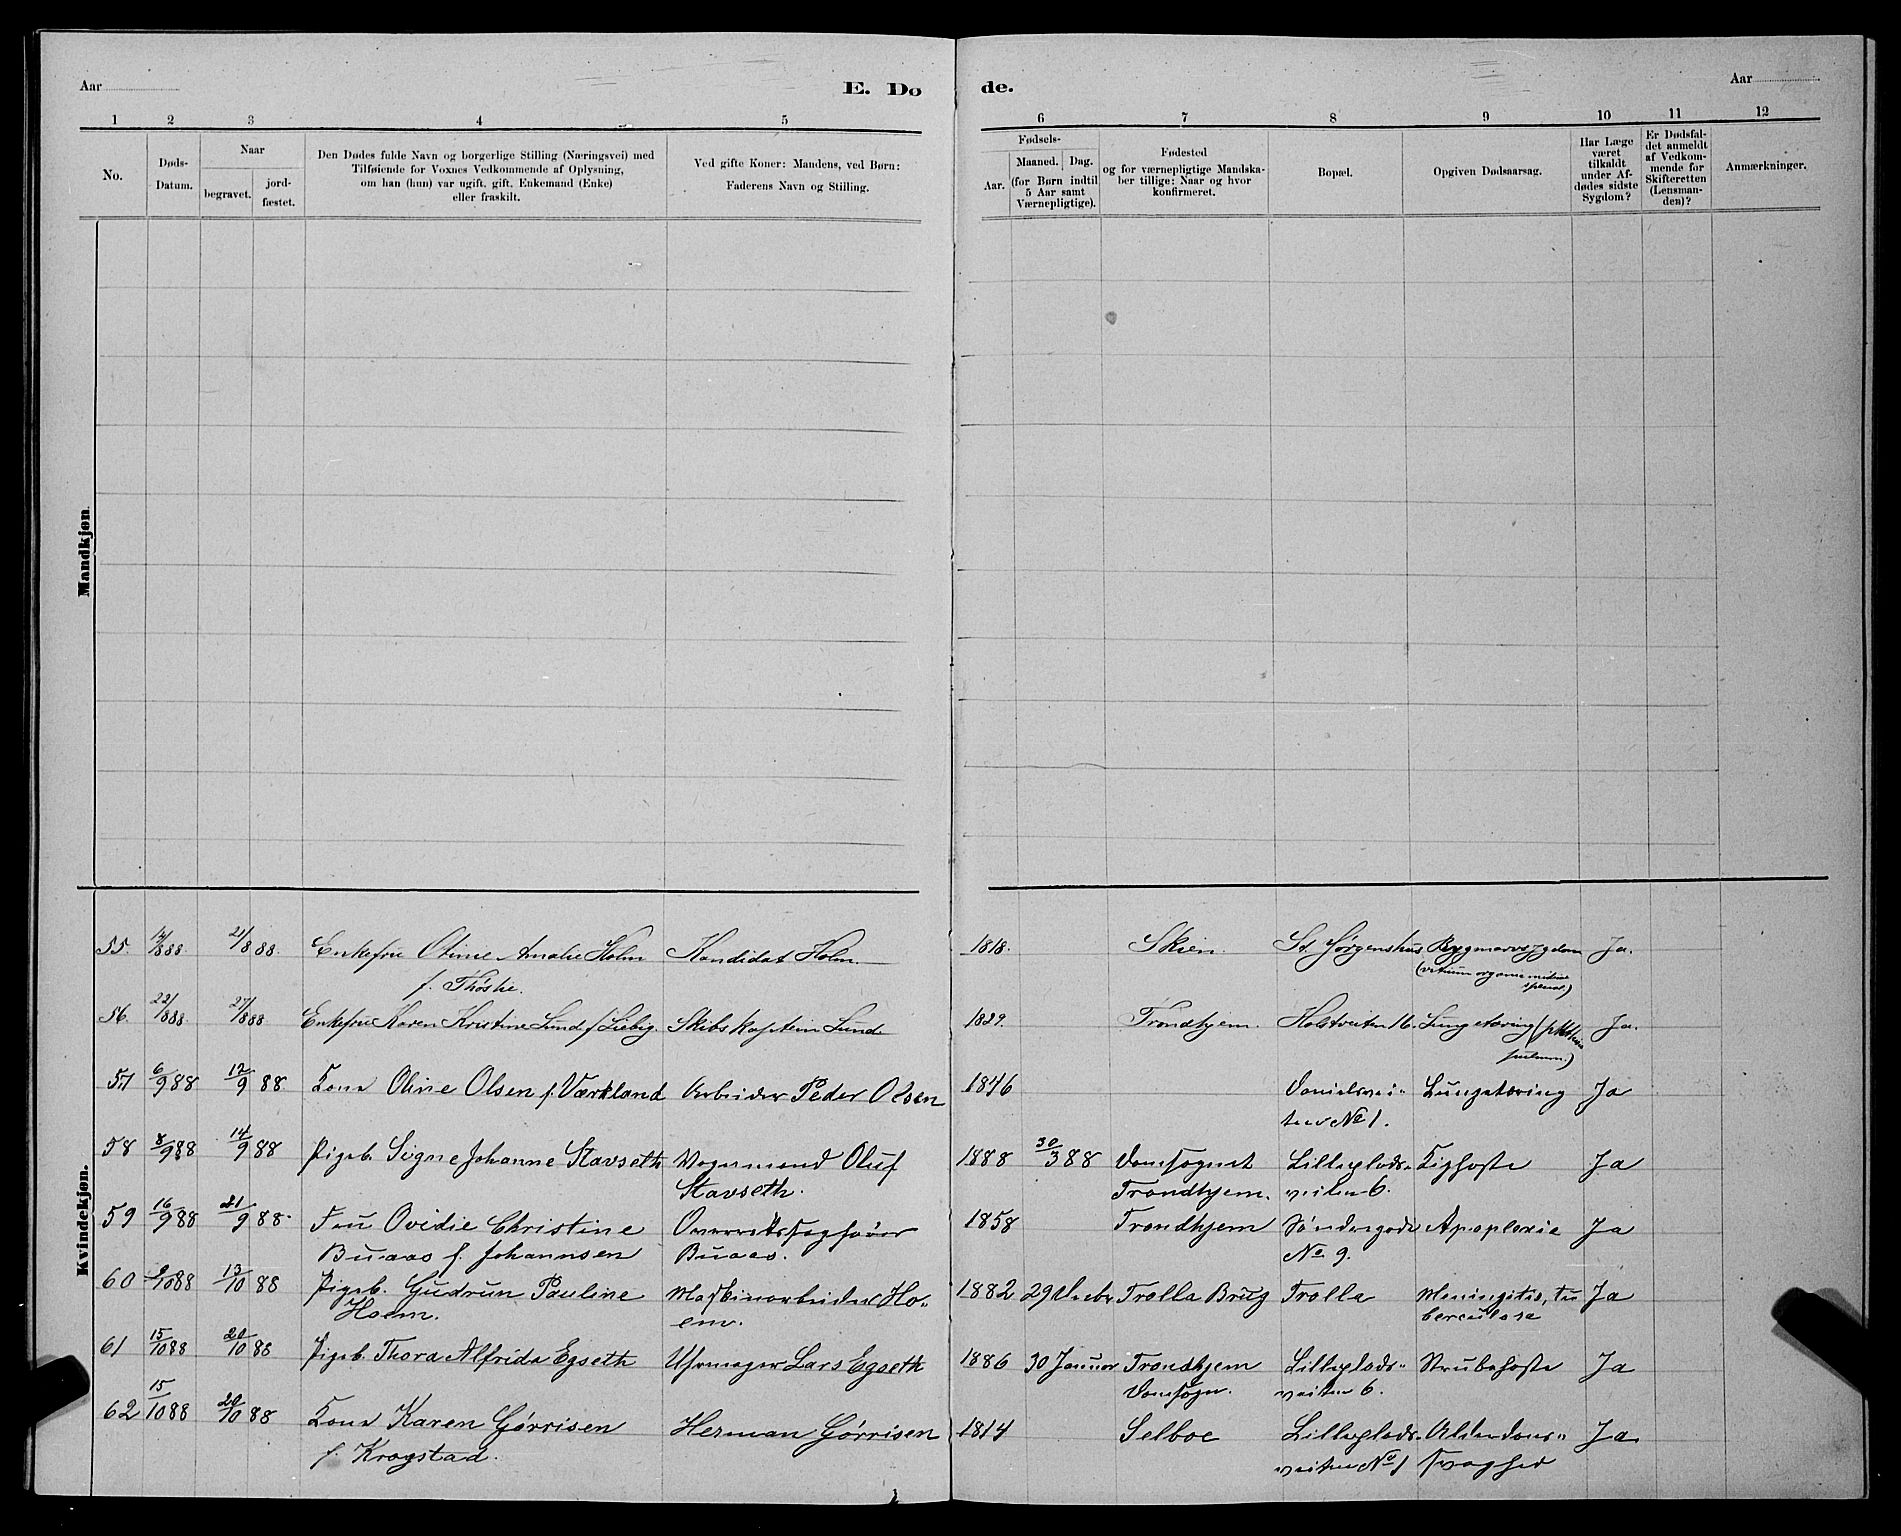 Aar
E. Dø
de.
Aar
1 2 3 4 5 6 7 8 9 10 11 12
No.
Døds-
Datum.
Naar
begravet.
jord-
fæstet.
Den Dødes fulde Navn og borgerlige Stilling (Næringsvei) med
Tilføiende for Voxnes Vedkommende af Oplysning,
om han (hun) var ugift, gift, Enkemand (Enke)
eller fraskilt.
Ved gifte Koner: Mandens, ved Børn:
Faderens Navn og Stilling.
Fødsels-
Aar.
Maaned. Dag.
(for Børn indtil
5 Aar samt
Værnepligtige).
Fødested
og for værnepligtige Mandska-
ber tillige: Naar og hvor
konfirmeret.
Bopæl.
Opgiven Dødsaarsag.
Har Læge
været
tilkaldt
under Af-
dødes sidste
Sygdom?
Er Dødsfal-
det anmeldt
af Vedkom-
mende for
Skifteretten
(Lensman-
den)?
Anmærkninger.
Mandkjøn.
Kvindekjøn.
55. 14/8 88 21/8 88 Enkefru Oline Amalie Holm Kandidat Holm. 1818. Skien. St. Jørgenshus Rygmarvssygdom Ja.
(vitium organ medul
spinal)
56. 22/8 88 27/8 88 Enkefru Karen Kristine Lund f. Liebig Skibskaptein Lund 1829. Trondhjem. Holstveiten 16. Lungetæring (phthisis Ja.
pulmon.)
57 6/9 88 12/9 88 Kone Oline Olsen f. Værkland Arbeider Peder Olsen 1846 Danielsvei- Lungetæring Ja
ten No 1.
58 8/9 88 14/9 88 Pigeb. Signe Johanne Stavseth Vognmand Oluf 1888 30/3 88 Domsognet Lilleglads- Kighoste Ja
Stavseth. Trondhjem. veiten 6.
59 16/9 88 21/9 88 Fru Ovidie Christine Overretssagfører 1858 Trondhjem Søndregade Apoplexie Ja
Buaas f. Johannsen Buaas. No 9.
60 9/10 88 13/10 88 Pigeb. Gudrun Pauline Maskinarbeider Ho- 1882 29 Decbr Trolla Brug Trolla Meningitis, tu Ja
Hoem. em. berculose
61 15/10 88 20/10 88 Pigeb. Thora Alfrida Egseth Uhrmager Lars Egseth 1886 30 Januar Trondhjem Lilleglads- Strubehoste Ja
Domsogn. veiten 6.
62 15/10 88 20/10 88 Kone Karen Gørrisen Herman Gørrisen 1814 Selboe Lilleglads- Alderdoms- Ja
f. Krogstad. veiten No 1 svaghed